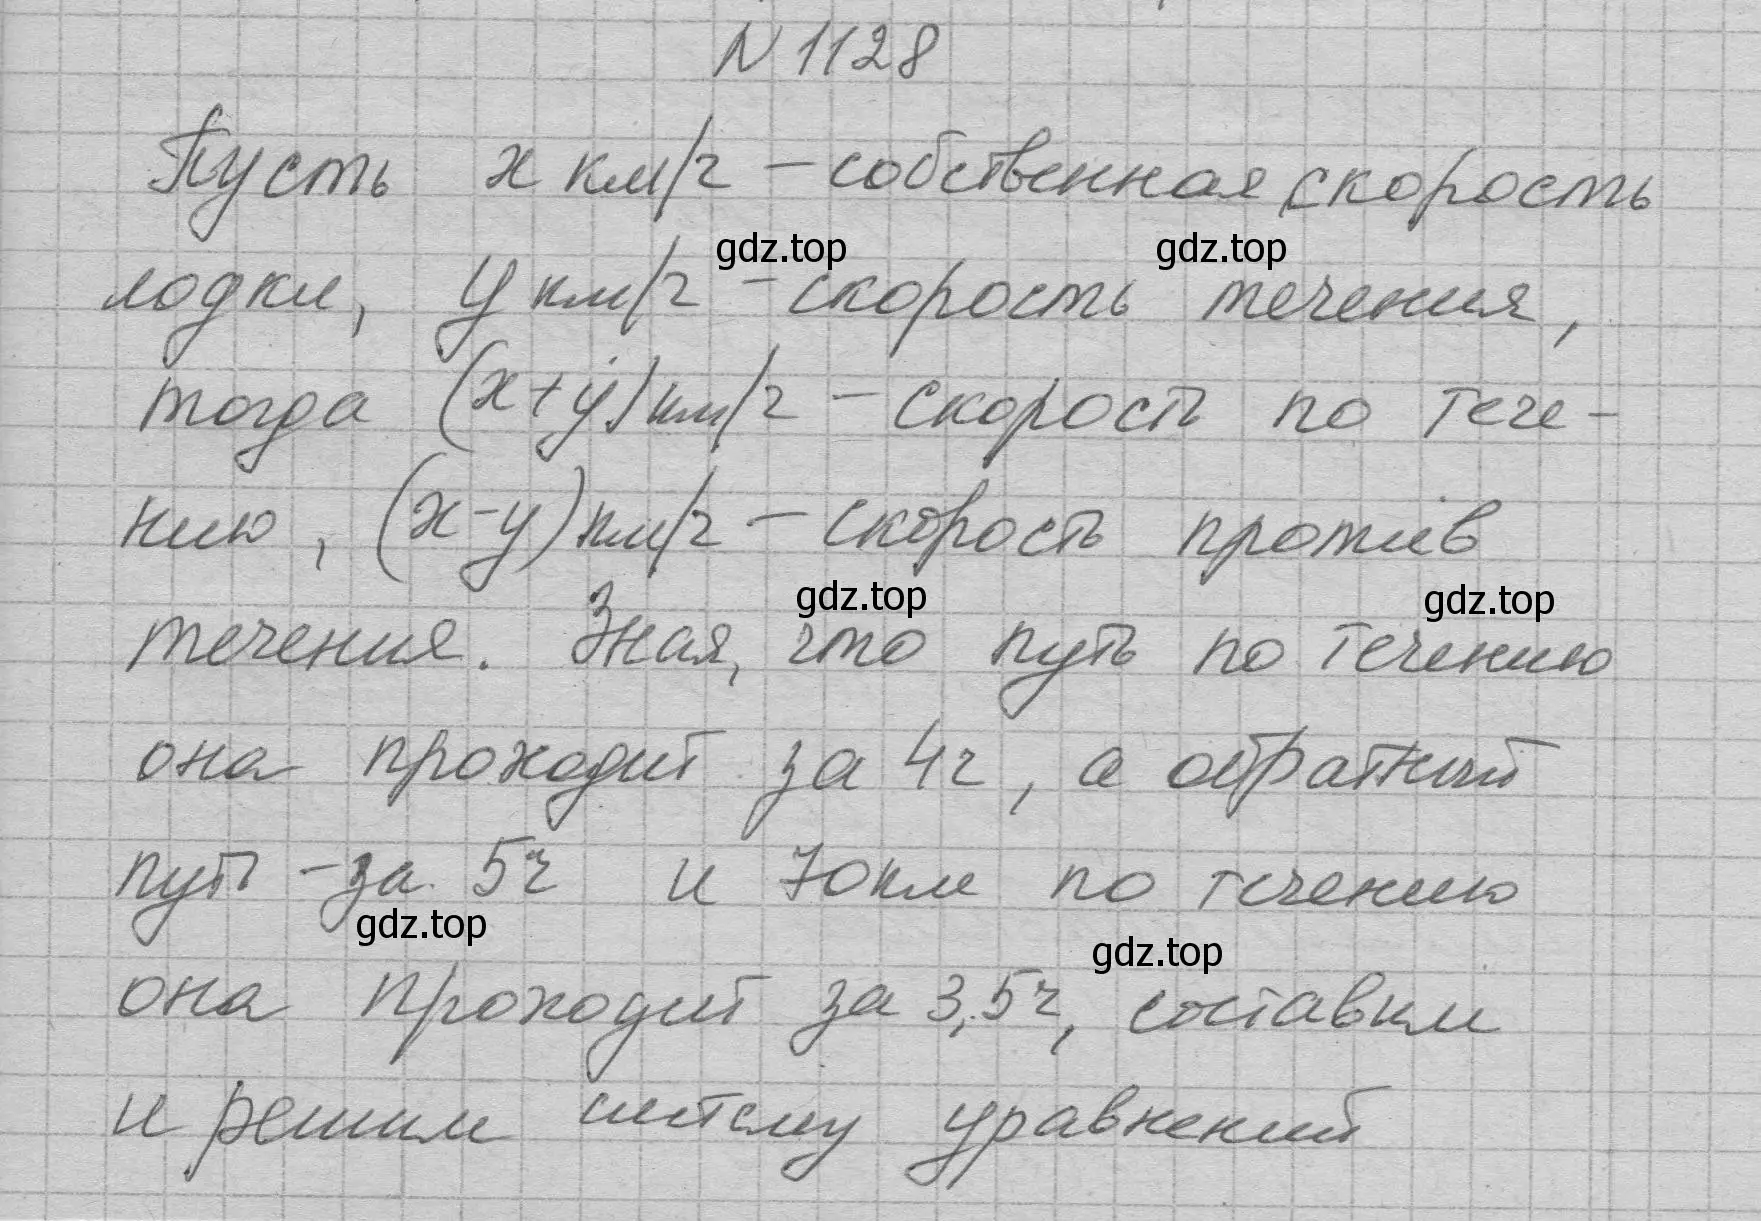 N 1128
Пусть x км/ч – собственная скорость
gdz.top gdz.top
лодки, y км/ч – скорость течения,
тогда (x+y) км/ч – скорость по тече-
нию, (x-y) км/ч – скорость против
gdz.top gdz.top
течения. Зная, что путь по течению
она проходит за 4ч, а обратный
путь – за 5ч и 70км по течению
gdz.top gdz.top
она проходит за 3,5ч, составим
и решим систему уравнений